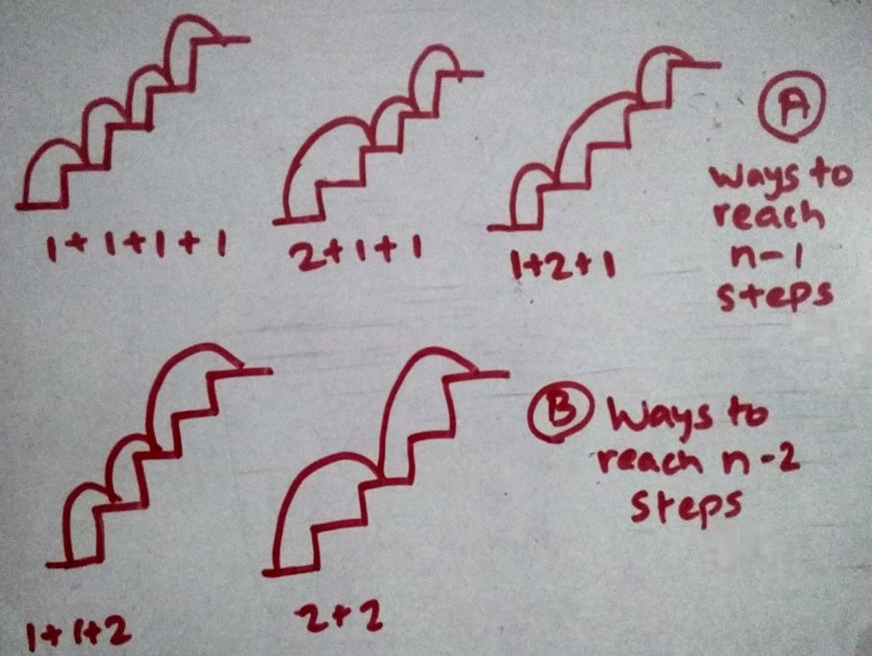 1+1+1+1
2+1+1
1+2+1
A
Ways to
reach
n-1
steps
B Ways to
reach n-2
steps
1+1+2
2+2